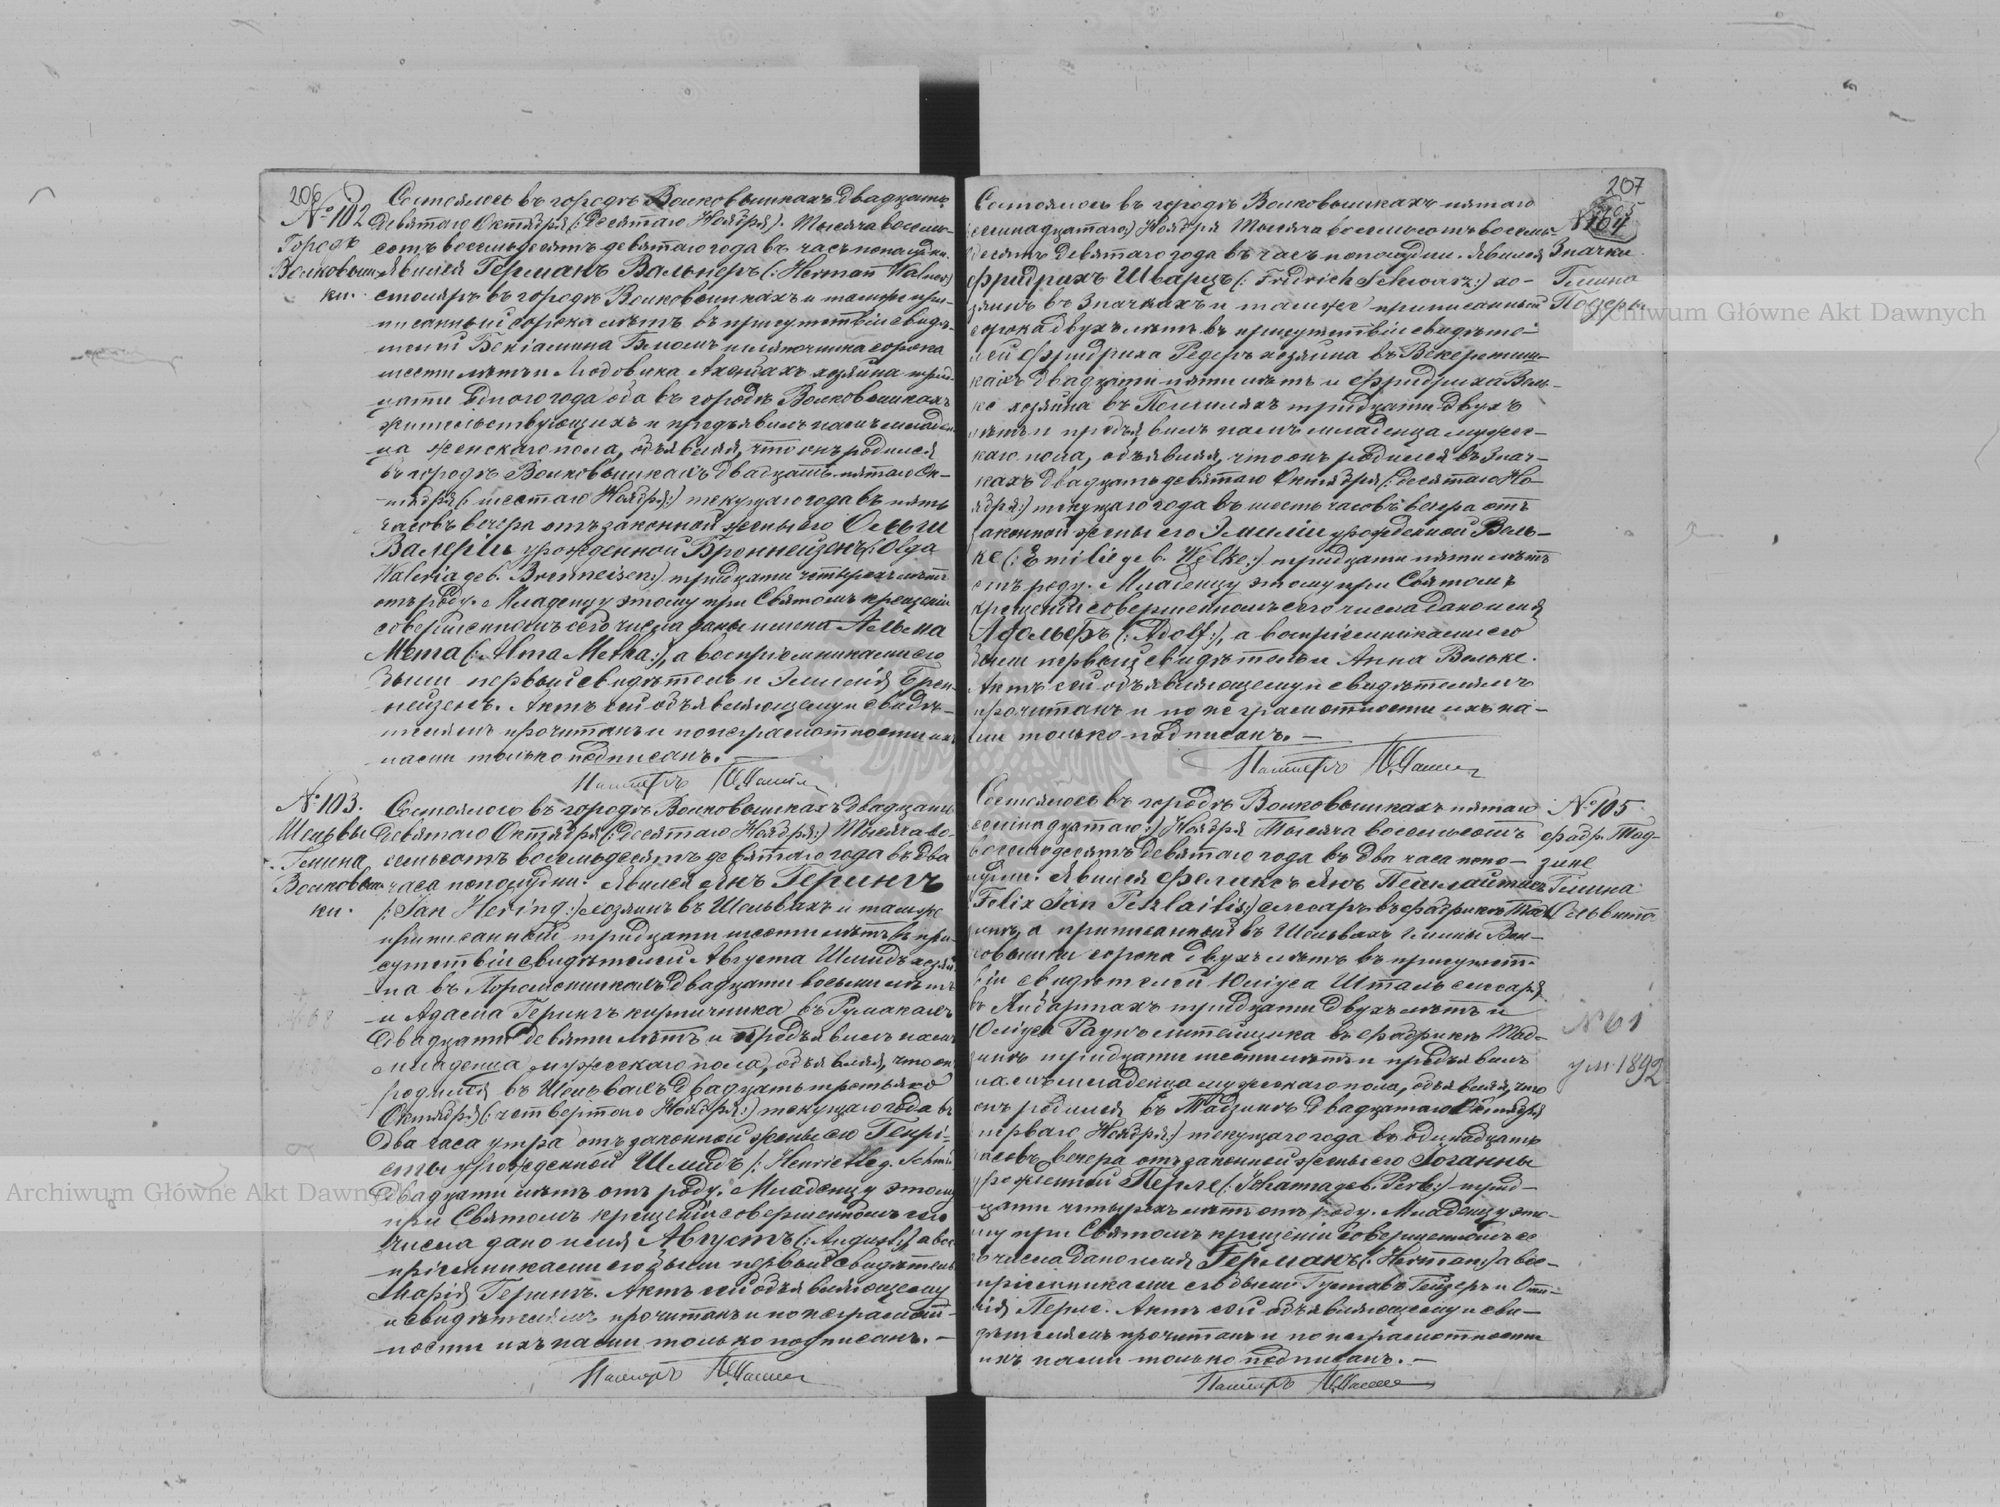 206
№ 102
Городъ
Волковыш-
ки.
Состоялось въ городѣ Волковышкахъ двадцать
девятаго Октября (: десятаго Ноября). Тысяча восемь-
сотъ восемьдесятъ девятаго года въ часъ пополудни.
Явился Германъ Вальнеръ (: Herman Walner)
столяръ въ городѣ Волковышкахъ и тамже при-
писанный сорока лѣтъ въ присутствіи свидѣ-
телей Веніамина сорока
шести лѣтъ и Людовика хозяина трид-
цати одного года оба въ городѣ Волковышкахъ
жительствующихъ и предъявилъ намъ младен-
ца женскаго пола, объявляя, что онъ родился
въ городѣ Волковышкахъ двадцать пятаго Ок-
тября (: шестаго Ноября:) текущаго года въ пять
часовъ вечера отъ законной жены его Ольги
Валеріи урожденной Бреннейзенъ (: Olga
Waleria geb. Brenneisen:) тридцати четырехъ лѣтъ
отъ роду. Младенцу этому при Святомъ крещеніи
совершенномъ сего числа даны имена Альма
Мета (: Alma Metha:), а воспріемниками его
были первый свидѣтель и Эмилія Брен-
нейзенъ. Актъ сей объявляющему и свидѣ-
телямъ прочитанъ и по неграмотности ихъ
нами только подписанъ.
Пасторъ
№ 103.
Шельвы
Гмина
Волковыш-
ки.
Состоялось въ городѣ Волковышкахъ двадцать
девятаго Октября (: десятаго Ноября:) Тысяча во-
семьсотъ восемьдесятъ девятаго года въ два
часа пополудни. Явился Янъ Герингъ
(: Jan Hering:) хозяинъ въ Шельвахъ и тамже
приписанный тридцати шести лѣтъ въ при-
сутствіи свидѣтелей Августа Шмидъ хозяи-
на въ двадцати восьми лѣтъ
и Адама Герингъ кирпичника въ Румакахъ
двадцати девяти лѣтъ и предъявилъ намъ
младенца мужескаго пола, объявляя, что онъ
родился въ Шельвахъ двадцать третьяго
Октября (: четвертаго Ноября:) текущаго года въ
два часа утра отъ законной жены его Генрі-
еты урожденной Шмидъ (: Henriette g. Schmid
двадцати лѣтъ отъ роду. Младенцу этому
при Святомъ крещеніи совершенномъ сего
числа дано имя Августъ (: August:) а вос-
пріемниками его были первый свидѣтель
Марія Герингъ. Актъ сей объявляющему
и свидѣтелямъ прочитанъ и по неграмот-
ности ихъ нами только подписанъ. —
Пасторъ
207
№ 104
Значки
Гмина
Состоялось въ городѣ Волковышкахъ пятаго
(семнадцатаго) Ноября Тысяча восемьсотъ восемь-
десятъ девятаго года въ часъ пополудни. Явился
Фридрихъ Шварцъ (: Fridrich Schwarz:) хо-
зяинъ въ Значкахъ и тамже приписанный
сорока двухъ лѣтъ въ присутствіи свидѣте-
лей Фридриха Редеръ хозяина въ
двадцати пяти лѣтъ и Фридриха Воль-
ке хозяина въ тридцати двухъ
лѣтъ и предъявилъ намъ младенца мужес-
каго пола, объявляя, что онъ родился въ Знач-
кахъ двадцать девятаго Октября (: десятаго Но-
ября:) текущаго года въ шесть часовъ вечера отъ
законной жены его Эмиліи урожденной Воль-
ке (: Emilie geb. Welke:) тридцати пяти лѣтъ
отъ роду. Младенцу этому при Святомъ
крещеніи совершенномъ сего числа дано имя
Адольфъ (: Adolf:), а воспріемниками его
были первый свидѣтель и Анна Вольке.
Актъ сей объявляющему и свидѣтелямъ
прочитанъ и по неграмотности ихъ на-
ми только подписанъ. —
Пасторъ
№ 105
фабр. Мад-
зине
Гмина
Состоялось въ городѣ Волковышкахъ пятаго
(семнадцатаго:) Ноября Тысяча восемьсотъ
восемьдесятъ девятаго года въ два часа попо-
лудни. Явился Феликсъ Янъ Пешлайтисъ
(Felix Jan Peszlaitis:) слесарь въ фабрикѣ Мад-
зинѣ, а приписанный въ Шельвахъ Гмины Вол-
ковышки сорока двухъ лѣтъ въ присутст-
віи свидѣтелей Юліуса Шталь слесаря
въ тридцати двухъ лѣтъ и
Юліуса Раунъ литейщика въ фабрикѣ Мад-
зинѣ тридцати шести лѣтъ и предъявилъ
намъ младенца мужескаго пола, объявляя, что
онъ родился въ Мадзинѣ двадцатаго Октября
перваго Ноября:) текущаго года въ одинадцать
часовъ вечера отъ законной жены его Іоганны
урожденной Перле (: Johanna geb. Perl:) трид-
цати четырехъ лѣтъ отъ роду. Младенцу это-
му при Святомъ крещеніи совершенномъ се-
го числа дано имя Германъ (: Herman:) а вос-
пріемниками его были Густавъ Гейзеръ и Оти-
лія Перле. Актъ сей объявляющему и сви-
дѣтелямъ прочитанъ и по неграмотности
ихъ нами только подписанъ. —
Пасторъ
№ 61
ум. 1892
Archiwum Główne Akt Dawnych
Archiwum Główne Akt Dawnych